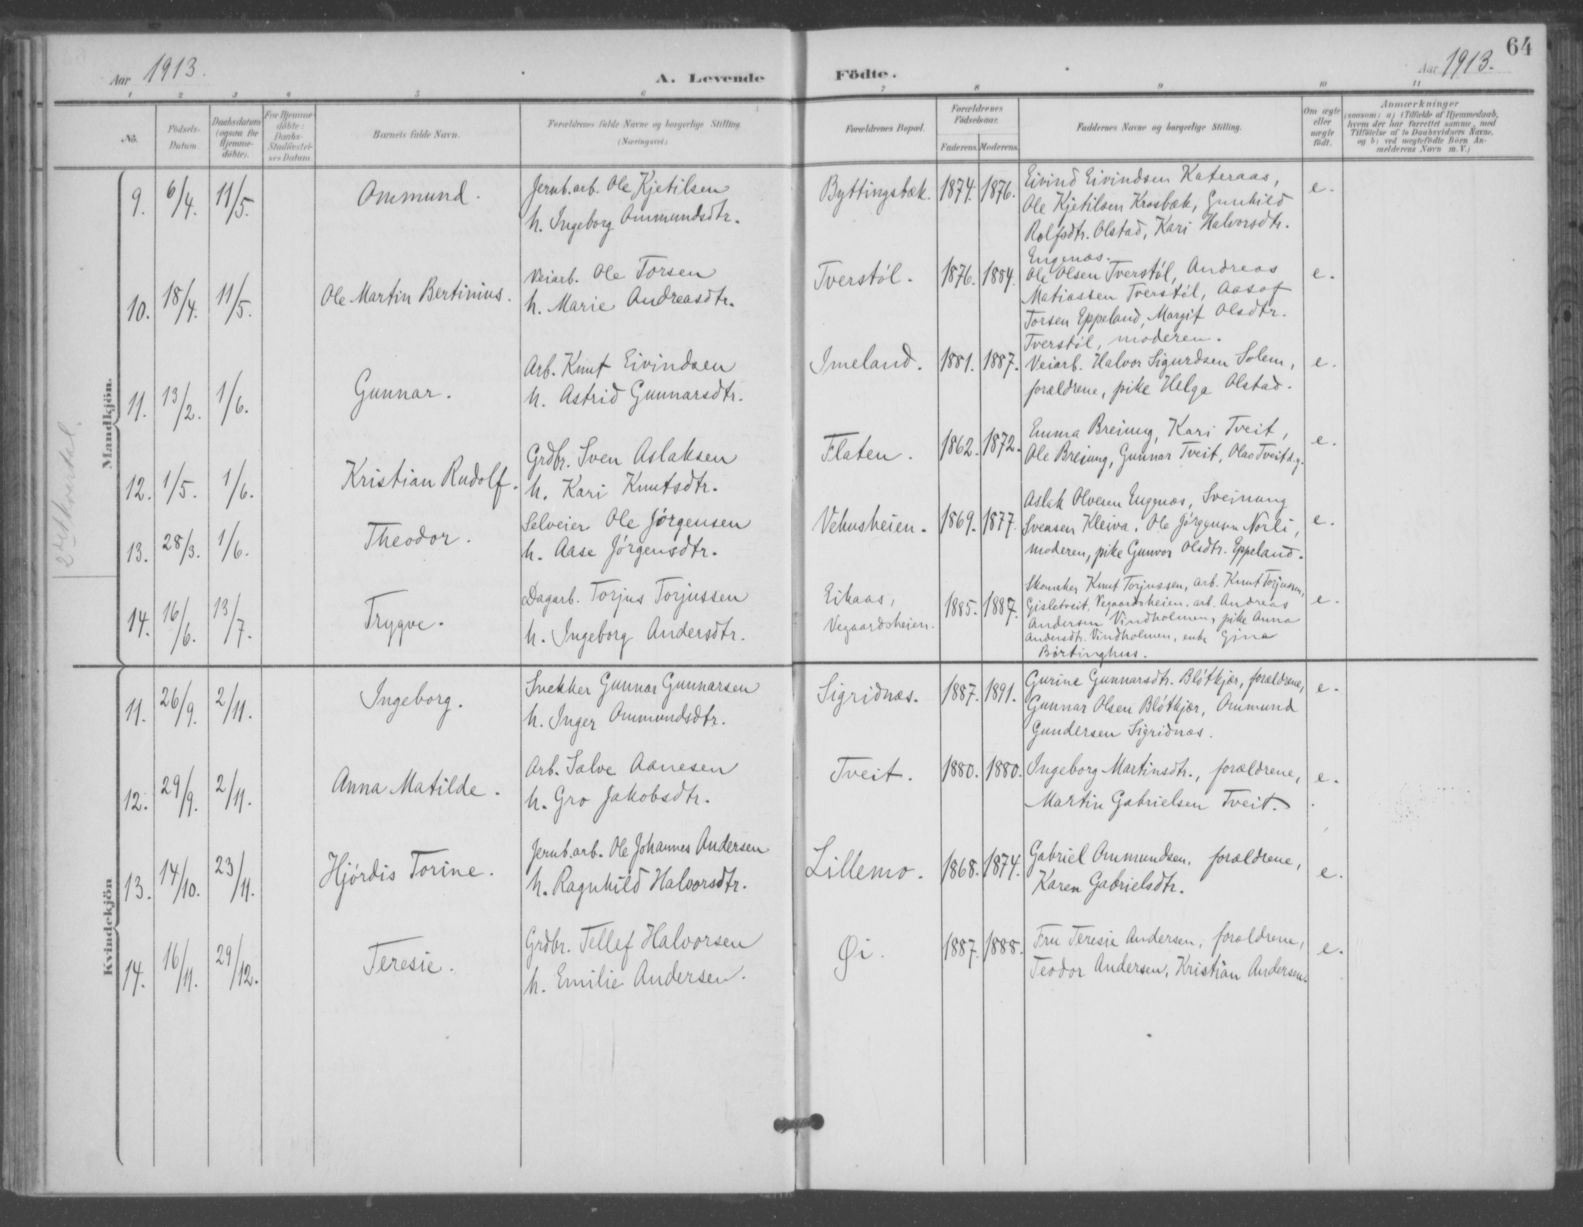 64
Aar 1913.
A. Levende Födte.
Aar 1913.
1 2 3 4 5 6 7 8 9 10 11
No. Födsels-Datum. Daabsdatum (ogsaa for Hjemme-döbte). For Hjemme-döbte: Daabs-Stadfæstel-ses Datum Barnets fulde Navn. Forældrenes fulde Navne og borgerlige Stilling (Næringsvei). Forældrenes Bopæl. Forældrenes Födselsaar. Faderens. Moderens. Faddernes Navne og borgerlige Stilling. Om ægte eller uægte födt. Anmærkninger
(saasom: a) i Tilfælde af Hjemmedaab, hvem der har forrettet samme, med Tilföielse af to Daabsvidners Navne, og b) ved uegtefödte Börn Anmelderens Navn m. V.)
Mandkjön.
2det Kvartal.
9. 6/4. 11/5. Ommund. Jernb.arb. Ole Kjetilsen
h. Ingeborg Ommundsdtr. Byttingsbæk. 1874. 1876. Eivind Eivindsen Kateraas,
Ole Kjetilsen Krosbæk, Gunhild
Rolfsdtr. Olstad, Kari Halvorsdtr.
Engenes. e.
10. 18/4. 11/5. Ole Martin Bertinius. Veiarb. Ole Torsen
h. Marie Andreasdtr. Tverstøl. 1876. 1884. Ole Olsen Tverstøl, Andreas
Matiassen Tverstøl, Aasof
Torsen Eppeland, Margit Olsdtr.
Tverstøl, moderen. e.
11. 13/2. 1/6. Gunnar. Arb. Knut Eivindsen
h. Astrid Gunnarsdtr. Imeland. 1881. 1887. Veiarb. Halvor Sigurdsen Solem,
forældrene, pike Helga Olstad. e.
12. 1/5. 1/6. Kristian Rudolf. Grdbr. Sven Aslaksen
h. Kari Knutsdtr. Flaten. 1862. 1872. Emma Breiung, Kari Tveit,
Ole Breiung, Gunnar Tveit, Olav Tveit e.
13. 28/3. 1/6. Theodor. Selveier Ole Jørgensen
h. Aase Jørgensdtr. Vehusheien. 1869. 1877. Aslak Olvesen Engenes, Sveinung
Svensen Kleiva, Ole Jørgensen Norli,
moderen, pike Gunvor Olsdtr. Eppeland. e.
14. 16/6. 13/7. Trygve. Dagarb. Torjus Torjussen
h. Ingeborg Andersdtr. Eikaas,
Vegaardsheien. 1885. 1887. Skomaker Knut Torjussen, arb. Knut Torjussen,
Gisletveit, Vegaardsheien. arb. Andreas
Andersen Vindholmen, pike Anna
Andersdtr. Vindholmen, enke Gina
Børtinghus. e.
Kvindekjön
11. 26/9. 2/11. Ingeborg. Snekker Gunnar Gunnarsen
h. Inger Ommundsdtr. Sigridnæs. 1887. 1891. Gurine Gunnarsdtr. Bløtkjær, forældrene,
Gunnar Olsen Bløtkjær, Ommund
Gundersen Sigridnæs. e.
12. 29/9. 2/11. Anna Matilde. Arb. Salve Aanesen
h. Gro Jakobsdtr. Tveit. 1880. 1880. Ingeborg Martinsdtr., forældrene,
Martin Gabrielsen Tveit. e.
13. 14/10. 23/11. Hjørdis Torine. Jernb.arb. Ole Johannes Andersen
h. Ragnhild Halvorsdtr. Lillemo. 1868. 1874. Gabriel Ommundsen, forældrene,
Karen Gabrielsdtr. e.
14. 16/11. 29/12. Teresie. Grdbr. Tellef Halvorsen
h. Emilie Andersen. Øi. 1887. 1888. Fru Teresie Andersen, forældrene,
Teodor Andersen, Kristian Andersen. e.